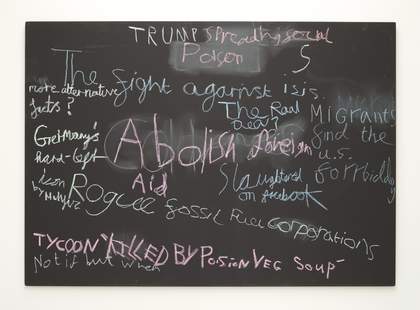 TRUMP spreading social
Poison
S
The fight against isis.
more alternative
facts?
The Real
deal?
Migrants
find the
u.s.
forbidding
Germany's
hard-left
icon
Abolish foreign
Aid
Slaughtered
on facebook
Rogue fossil Fuel corporations
TYCOON "KILLED BY POISION VEG SOUP"
Not if but when